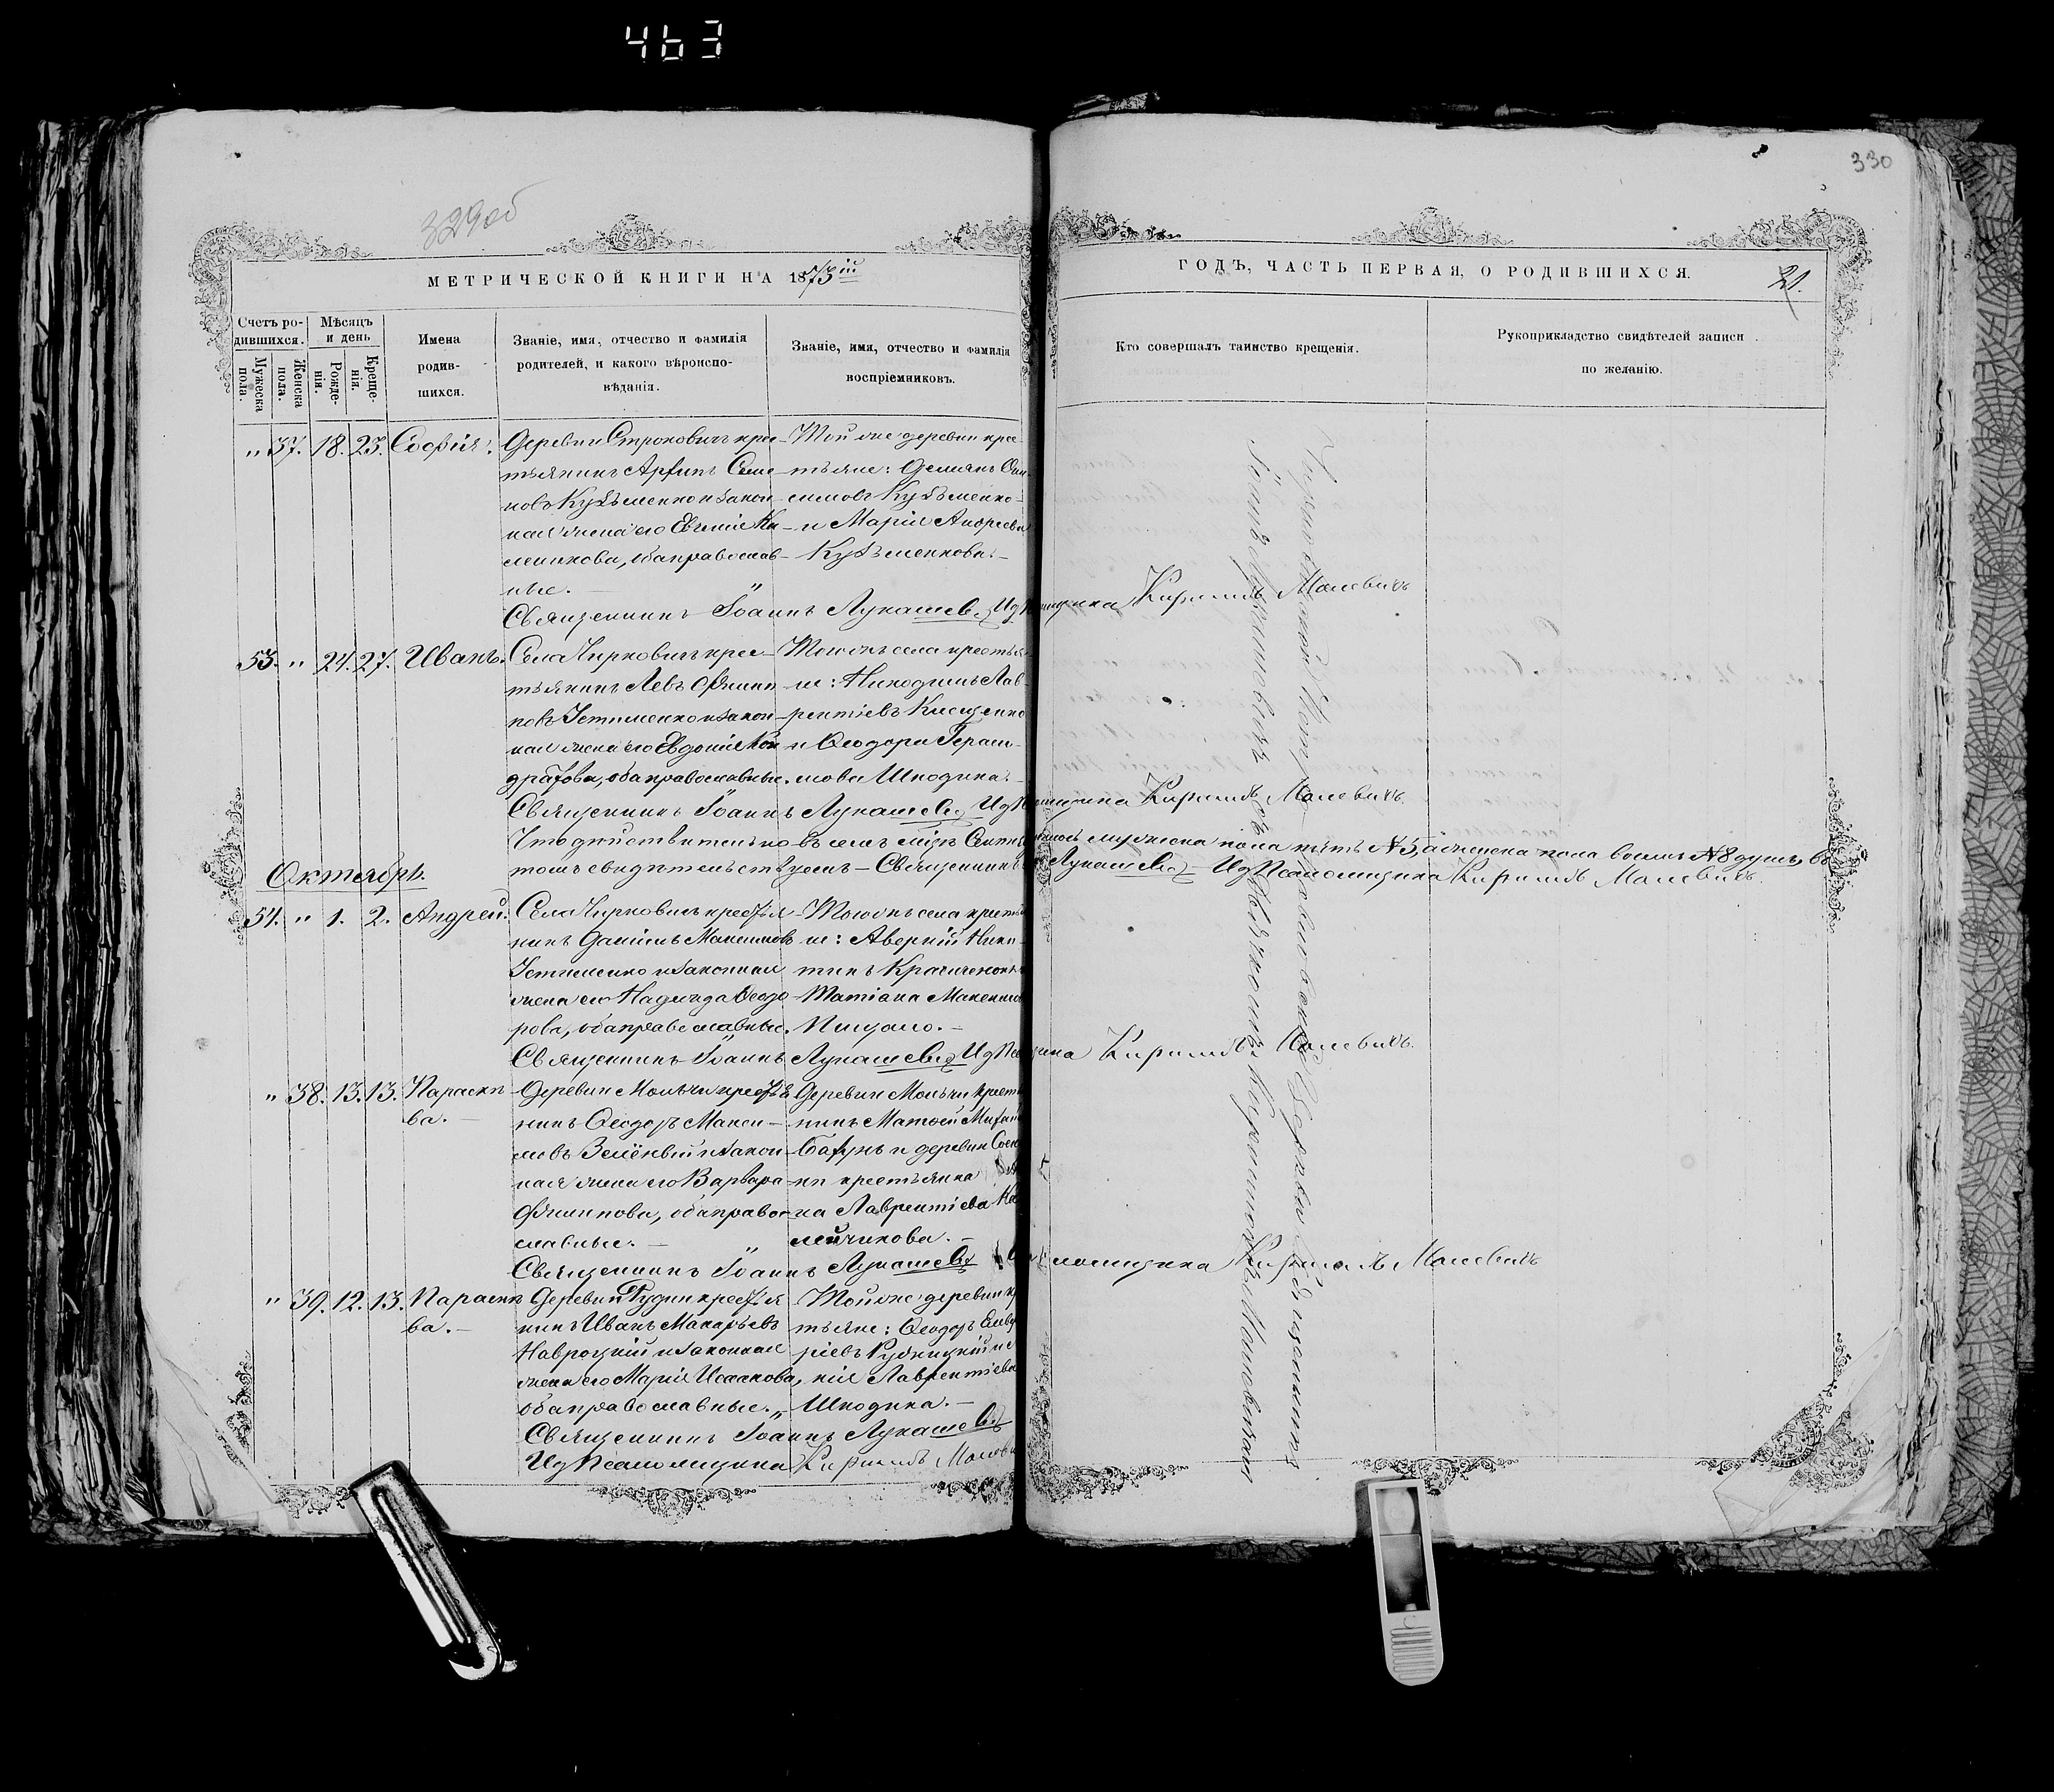 463
330
329об
МЕТРИЧЕСКОЙ КНИГИ НА 1873ій
ГОДЪ, ЧАСТЬ ПЕРВАЯ, О РОДИВШИХСЯ.
21.
Счетъ ро-
дившихся.
Мужеска
пола.
Женска
пола.
Мѣсяцъ
и день
Рожде-
нія.
Креще-
нія.
Имена
родив-
шихся.
Званіе, имя, отчество и фамилія
родителей, и какого вѣроиспо-
вѣданія.
Званіе, имя, отчество и фамилія
воспріемниковъ.
Кто совершалъ таинство крещенія.
Рукоприкладство свидѣтелей записи
по желанію.
" 37. 18. 23. Софія.
Деревни Строковичъ кре-
стьянинъ Архипъ Симе-
новъ Кузьменко и закон-
ная жена его Евгенія
обаправослав-
ные.
Той же деревни кре-
стьяне: Демянъ
Кузьменко
и Марія Андреева
Кузьменкова.
Священникъ Іоаннъ Лукашевъ Ид Псаломщика Кириллъ Малевичъ
53. " 24. 27. Иванъ.
Села Чирковичъ кре-
стьянинъ Левъ Филип-
повъ Устименко и закон-
ная жена его Евдокія Кон-
дратова, обаправославные.
Того жъ села крестья-
не: Никодимъ Лав-
рентіевъ Клещенко
и Ѳеодора Гераси-
мова Шкодина.
Священникъ Іоаннъ Лукашевъ Ид Псаломщика Кириллъ Малевичъ.
Что дѣйствительно въ семъ мѣсяцѣ мужеска пола пять №5, а женска пола восемь №8 душъ, въ
томъ свидѣтельствуемъ – Священникъ Лукашевъ Ид Псаломщика Кириллъ Малевичъ.
Октябрь.
54. " 1. 2. Андрей.
Села Чирковичъ крестья-
нинъ Даніилъ Максимовъ
Устименко и законная
жена его Надежда Ѳеодо-
рова, обаправославные.
Того жъ села крестья-
не: Аверкій Ники-
тинъ
Татіана Максимова
Священникъ Іоаннъ Лукашевъ Ид Кириллъ Малевичъ.
" 38. 13. 13. Параске-
ва.
Деревни Мольчи крестья-
нинъ Ѳеодоръ Макси-
мовъ Зелёный и закон-
ная жена его Варвара
Филипова, обаправо-
славные.
Деревни Мольчи крест
нинъ Матѳей Михай
и деревни
крестьянка
на Лаврентіева
Священникъ Іоаннъ Лукашевъ Кириллъ Малевичъ
" 39. 12. 13. Параске-
ва.
Деревни Рудни крестья-
нинъ Иванъ Макарьевъ
Навроцкій и законная
жена его Марія Исаакова,
обаправославные.
Той же деревни кре
стьяне: Ѳеодоръ
ріевъ Рудницкій и
нія Лаврентіева
Шкодина.
Священникъ Іоаннъ Лукашевъ
Ид Псаломщика Кириллъ Малеви
Церкви Священникъ
Іоаннъ Лукашевичъ съ Кирилломъ Малевичемъ